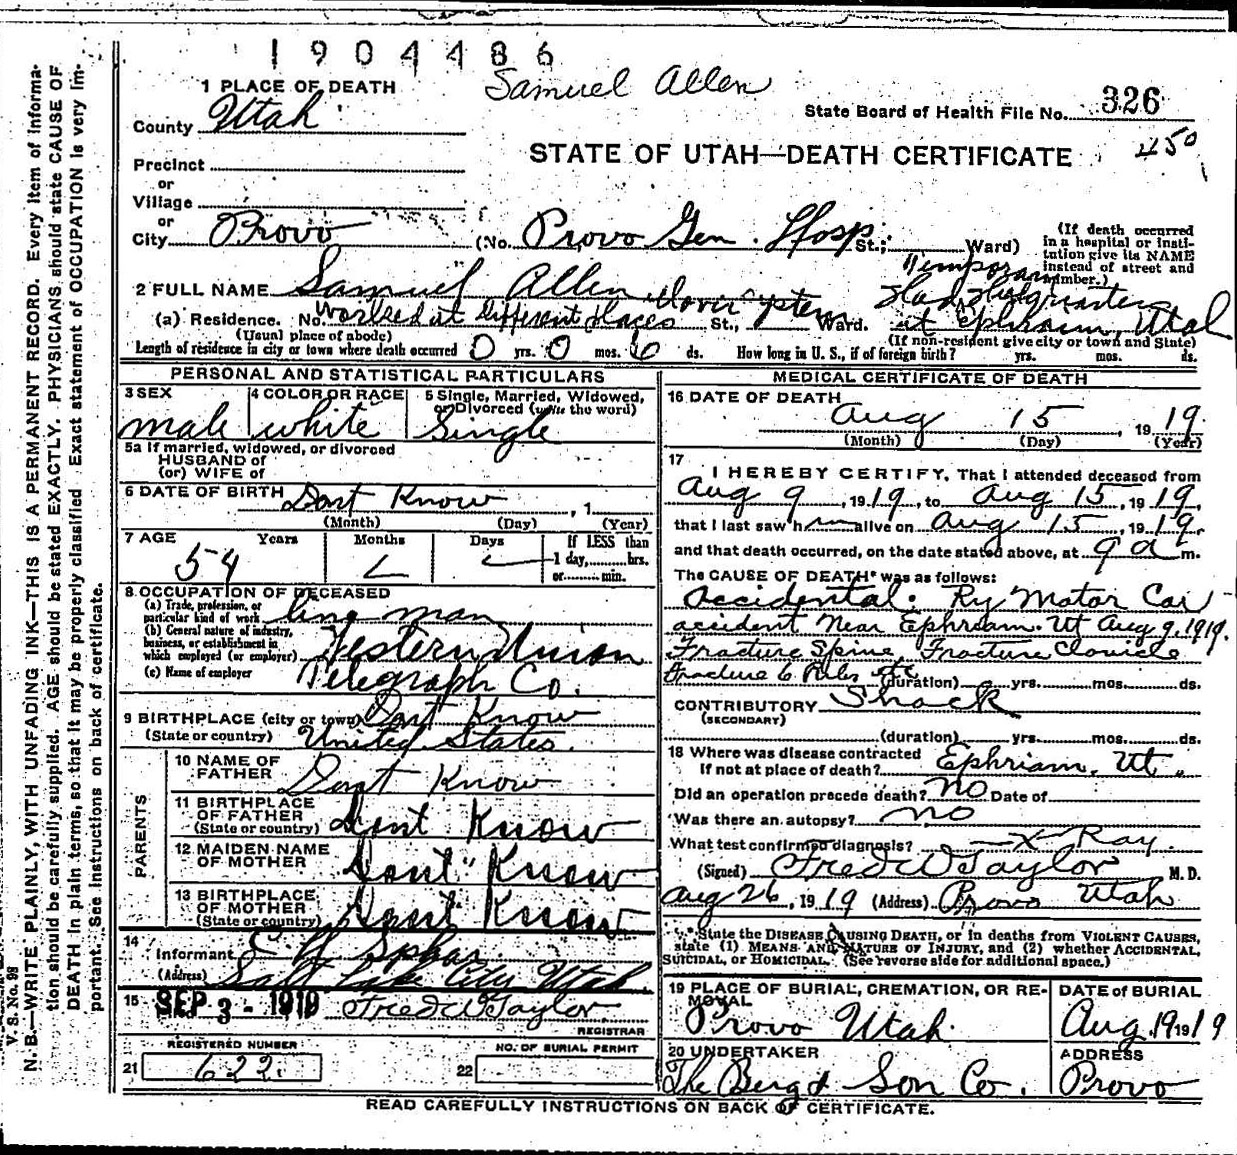 1904486
Samuel Allen
1 PLACE OF DEATH
State Board of Health File No. 326
County Utah
STATE OF UTAH—DEATH CERTIFICATE
450
Precinct
or
Village
or
City Provo (No. Provo Gen. Hosp St.; Ward)
(If death occurred in a hospital or insti-
tation give its NAME
instead of street and
number.)
2 FULL NAME Samuel Allen
(a) Residence. No. Worked at different places over system St., Ward. Temporary Had Hdqrarters at Ephraim, Utah
(Usual place of abode) (If non-resident give city or town and State)
Length of residence in city or town where death occurred 0 yrs. 0 mos. 6 ds. How long in U. S., if of foreign birth? yrs. mos. ds.
PERSONAL AND STATISTICAL PARTICULARS
3 SEX male
4 COLOR OR RACE white
5 Single, Married, Widowed,
or Divorced (write the word)
Single
5a If married, widowed, or divorced
HUSBAND of
(or) WIFE of
6 DATE OF BIRTH Dont Know , 1
(Month) (Day) (Year)
7 AGE 54 Years Months Days
If LESS than
1 day, hrs.
or min.
8. OCCUPATION OF DECEASED
(a) Trade, profession, or
particular kind of work line man
(b) General nature of industry,
business, or establishment in
which employed (or employer) Western Union
(c) Name of employer Telegraph Co.
9 BIRTHPLACE (city or town) Dont Know
(State or country) United States.
PARENTS
10 NAME OF
FATHER Dont Know
11 BIRTHPLACE
OF FATHER
(State or country) Dont Know
12 MAIDEN NAME
OF MOTHER Dont Know
13 BIRTHPLACE
OF MOTHER
(State or country) Dont Know
14
Informant
(Address) Salt Lake City Utah
15 SEP 3 - 1919 Fred W Taylor
REGISTRAR
REGISTERED NUMBER
21 622.
NO. OF BURIAL PERMIT
22
MEDICAL CERTIFICATE OF DEATH
16 DATE OF DEATH
Aug 15, 1919.
(Month) (Day) (Year)
17
I HEREBY CERTIFY, That I attended deceased from
Aug 9, 1919, to Aug 15, 1919,
that I last saw him alive on Aug 15, 1919.
and that death occurred, on the date stated above, at 9 a m.
The CAUSE OF DEATH* was as follows:
Accidental. Ry Motor Car
accident Near Ephriam. Ut Aug 9. 1919.
Fracture Spine, Fracture Clavicle
Fracture 6 Ribs etc (duration) yrs. mos. ds.
CONTRIBUTORY Shock
(SECONDARY)
(duration) yrs. mos. ds.
18 Where was disease contracted
if not at place of death? Ephriam. Ut.
Did an operation precede death? no Date of
Was there an autopsy? no
What test confirmed diagnosis? X Ray.
(Signed) Fred W Taylor M. D.
Aug 26, 1919 (Address) Provo Utah
* State the DISEASE CAUSING DEATH, or in deaths from VIOLENT CAUSES,
state (1) MEANS AND NATURE OF INJURY, and (2) whether ACCIDENTAL,
SUICIDAL, or HOMICIDAL. (See reverse side for additional space.)
19 PLACE OF BURIAL, CREMATION, OR RE-
MOVAL
Provo Utah.
DATE of BURIAL
Aug. 19 1919
20 UNDERTAKER
The Berg & Son Co.
ADDRESS
Provo
READ CAREFULLY INSTRUCTIONS ON BACK OF CERTIFICATE.
V. S. No. 98
N. B.—WRITE PLAINLY, WITH UNFADING INK—THIS IS A PERMANENT RECORD. Every item of informa-
tion should be carefully supplied. AGE should be stated EXACTLY. PHYSICIANS should state CAUSE OF
DEATH in plain terms, so that it may be properly classified. Exact statement of OCCUPATION is very im-
portant. See instructions on back of certificate.